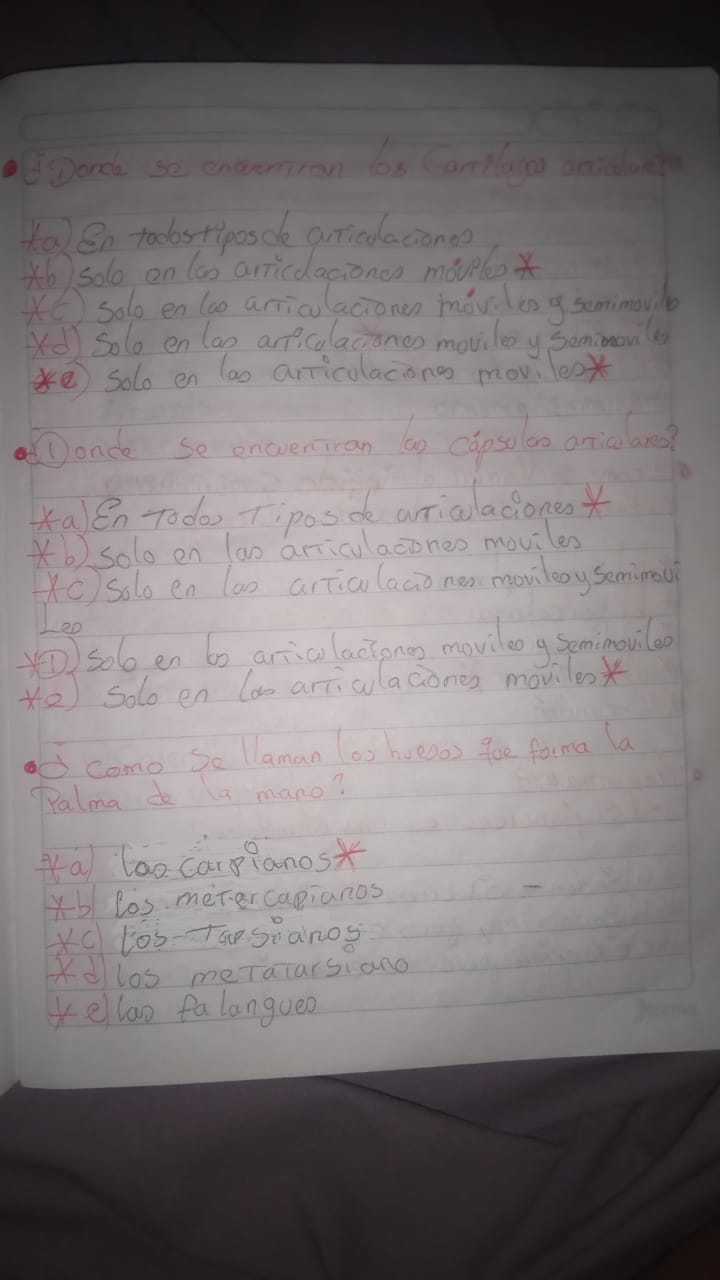 ¿Donde se encuentran los Cartilagos articulares
*a) En todos tipos de articulaciones
*b) solo en las articulaciones móviles *
*c) solo en las articulaciones móviles y semimovile
*d) solo en las articulaciones moviles y semimoviles
*e) solo en las articulaciones moviles *
¿Donde se encuentran las cápsulas articulares?
*a) En Todos Tipos de articulaciones *
*b) solo en las articulaciones moviles
*c) solo en las articulaciones moviles y semimovi
Les
*D) solo en las articulaciones moviles y semimoviles
*e) solo en las articulaciones moviles *
¿como se llaman los huesos que forma la
Palma de la mano?
*a) los carpianos *
*b) los metercapianos
*c) los Tarsianos
*d) los metatarsiano
*e) las falangues
Norma